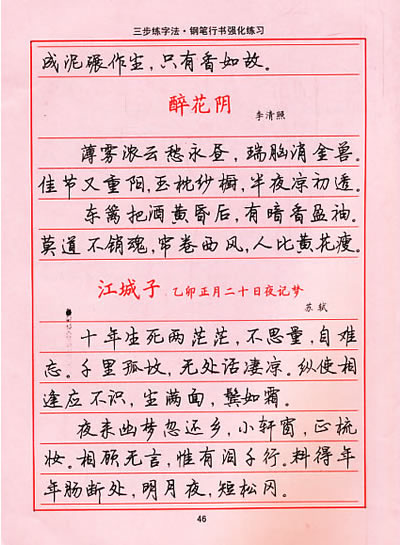 三步练字法·钢笔行书强化练习
成泥碾作尘，只有香如故。
醉花阴
李清照
薄雾浓云愁永昼，瑞脑消金兽。
佳节又重阳，玉枕纱橱，半夜凉初透。
东篱把酒黄昏后，有暗香盈袖。
莫道不销魂，帘卷西风，人比黄花瘦。
江城子 乙卯正月二十日夜记梦
苏轼
十年生死两茫茫，不思量，自难
忘。千里孤坟，无处话凄凉。纵使相
逢应不识，尘满面，鬓如霜。
夜来幽梦忽还乡，小轩窗，正梳
妆。相顾无言，惟有泪千行。料得年
年肠断处，明月夜，短松冈。
46